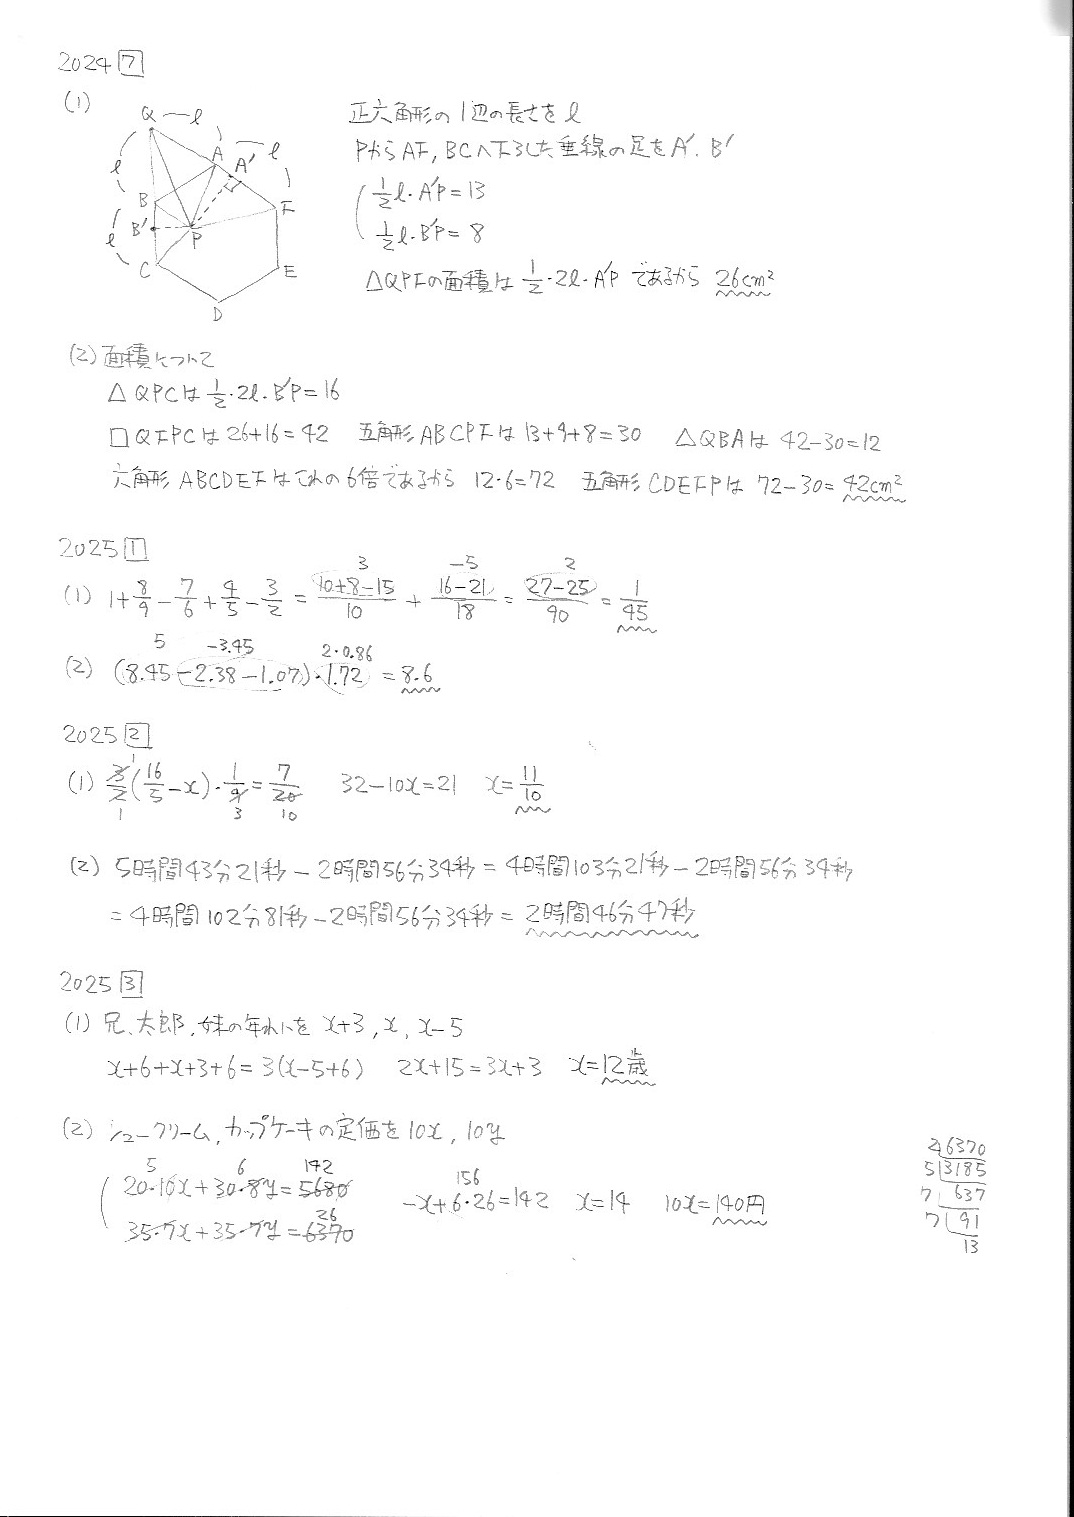 2024 7
(1)
Q l
l A A' l
B F
l B' P
C E
D
正六角形の1辺の長さをl
PからAF, BCへ下ろした垂線の足をA', B'
1/2 l・A'P=13
1/2 l・B'P=8
△QPFの面積は 1/2・2l・A'P であるから 26cm²
(2) 面積について
△QPCは 1/2・2l・B'P=16
□QFPCは26+16=42 五角形ABCPFは13+9+8=30 △QBAは 42-30=12
六角形ABCDEFはこれの6倍であるから 12・6=72 五角形CDEFPは 72-30=42cm²
2025 1
3 -5 2
(1) 1+8/9-7/6+4/5-3/2 = (10+8-15)/10 + (16-21)/18 = (27-25)/90 = 1/45
5 -3.45 2・0.86
(2) (8.45-2.38-1.07)・1.72 = 8.6
2025 2
1
(1) 3/2(16/5-x)・1/9=7/20 32-10x=21 x=11/10
1 3 10
(2) 5時間43分21秒-2時間56分34秒=4時間103分21秒-2時間56分34秒
=4時間102分81秒-2時間56分34秒=2時間46分47秒
2025 3
(1) 兄、太郎、妹の年れいを x+3, x, x-5
x+6+x+3+6=3(x-5+6) 2x+15=3x+3 x=12歳
(2) シュークリーム, カップケーキの定価を10x, 10y
5 6 142
20・10x+30・8y=5680
156
-x+6・26=142 x=14 10x=140円
26
35・7x+35・7y=6370
2 6370
5 3185
7 637
7 91
13